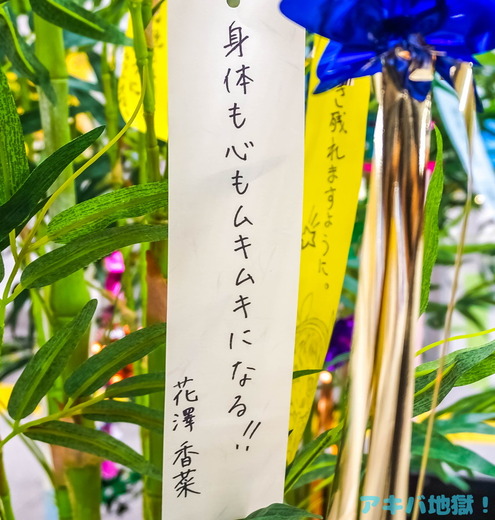 身体も心もムキムキになる!!
花澤香菜
き残れますように。
アキバ地獄！